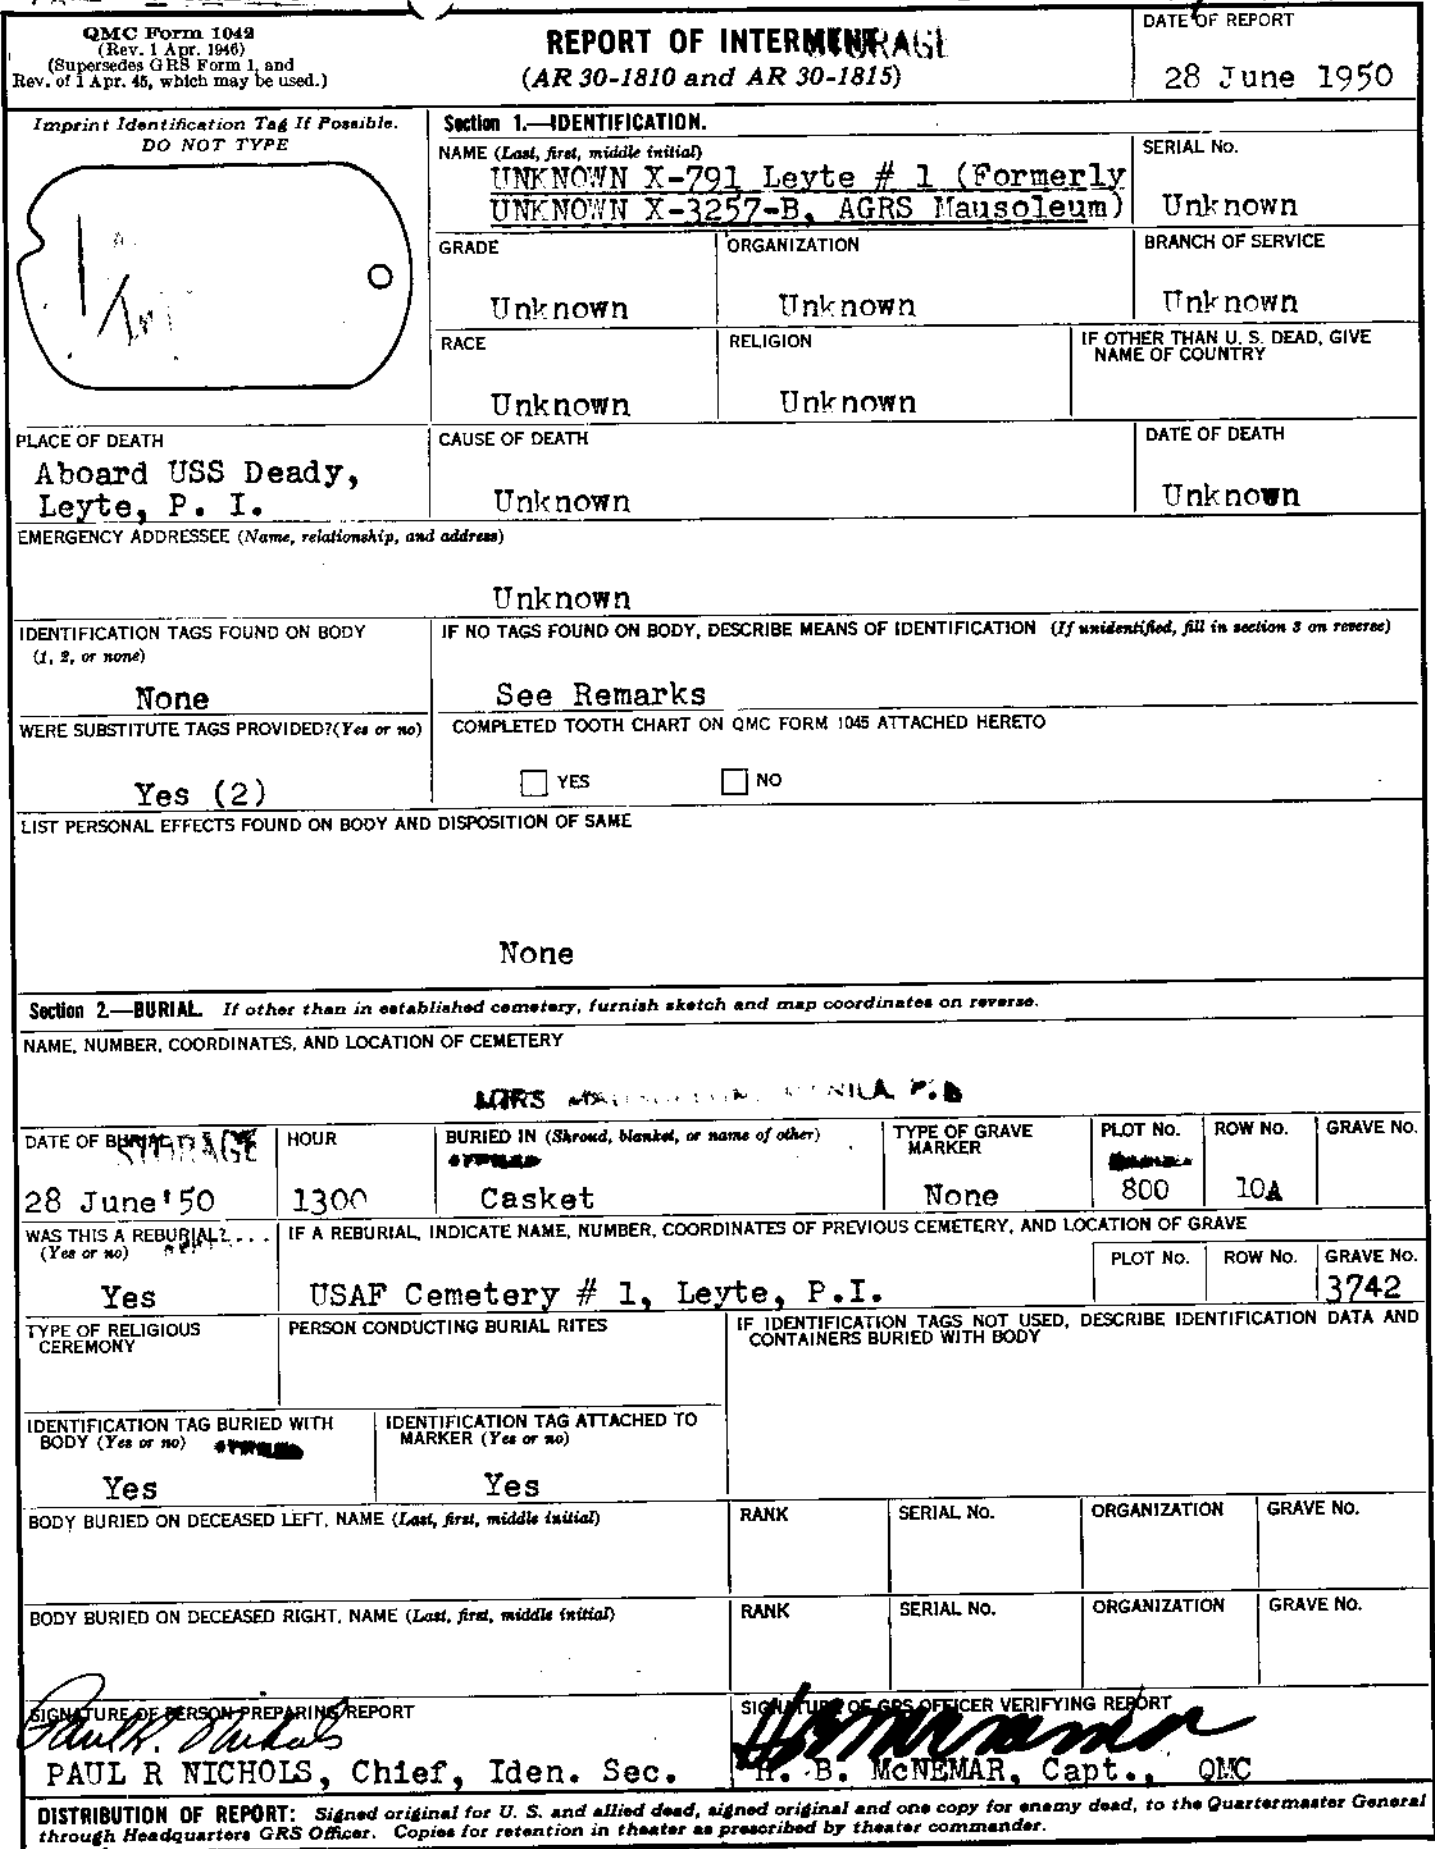 QMC Form 1042
(Rev. 1 Apr. 1946)
(Supersedes GRS Form 1, and
Rev. of 1 Apr. 45, which may be used.)
REPORT OF INTERMENT
(AR 30-1810 and AR 30-1815)
DATE OF REPORT
28 June 1950
Imprint Identification Tag If Possible.
DO NOT TYPE
Section 1.—IDENTIFICATION.
NAME (Last, first, middle initial)
UNKNOWN X-791 Leyte # 1 (Formerly
UNKNOWN X-3257-B, AGRS Mausoleum)
SERIAL No.
Unknown
GRADE
Unknown
ORGANIZATION
Unknown
BRANCH OF SERVICE
Unknown
RACE
Unknown
RELIGION
Unknown
IF OTHER THAN U. S. DEAD, GIVE
NAME OF COUNTRY
PLACE OF DEATH
Aboard USS Deady,
Leyte, P. I.
CAUSE OF DEATH
Unknown
DATE OF DEATH
Unknown
EMERGENCY ADDRESSEE (Name, relationship, and address)
Unknown
IDENTIFICATION TAGS FOUND ON BODY
(1, 2, or none)
None
IF NO TAGS FOUND ON BODY, DESCRIBE MEANS OF IDENTIFICATION (If unidentified, fill in section 3 on reverse)
See Remarks
WERE SUBSTITUTE TAGS PROVIDED?(Yes or no)
Yes (2)
COMPLETED TOOTH CHART ON QMC FORM 1045 ATTACHED HERETO
YES
NO
LIST PERSONAL EFFECTS FOUND ON BODY AND DISPOSITION OF SAME
None
Section 2.—BURIAL. If other than in established cemetery, furnish sketch and map coordinates on reverse.
NAME, NUMBER, COORDINATES, AND LOCATION OF CEMETERY
AGRS MANILA P.I.
DATE OF BURIAL
STORAGE
28 June'50
HOUR
1300
BURIED IN (Shroud, blanket, or name of other)
Casket
TYPE OF GRAVE
MARKER
None
PLOT No.
800
ROW No.
10A
GRAVE No.
WAS THIS A REBURIAL?
(Yes or no)
Yes
IF A REBURIAL, INDICATE NAME, NUMBER, COORDINATES OF PREVIOUS CEMETERY, AND LOCATION OF GRAVE
USAF Cemetery # 1, Leyte, P.I.
PLOT No.
ROW No.
GRAVE No.
3742
TYPE OF RELIGIOUS
CEREMONY
PERSON CONDUCTING BURIAL RITES
IF IDENTIFICATION TAGS NOT USED, DESCRIBE IDENTIFICATION DATA AND
CONTAINERS BURIED WITH BODY
IDENTIFICATION TAG BURIED WITH
BODY (Yes or no)
Yes
IDENTIFICATION TAG ATTACHED TO
MARKER (Yes or no)
Yes
BODY BURIED ON DECEASED LEFT, NAME (Last, first, middle initial)
RANK
SERIAL No.
ORGANIZATION
GRAVE No.
BODY BURIED ON DECEASED RIGHT, NAME (Last, first, middle initial)
RANK
SERIAL No.
ORGANIZATION
GRAVE No.
SIGNATURE OF PERSON PREPARING REPORT
Paul R. Nichols
PAUL R NICHOLS, Chief, Iden. Sec.
SIGNATURE OF GRS OFFICER VERIFYING REPORT
H. B. McNEMAR, Capt., QMC
DISTRIBUTION OF REPORT: Signed original for U. S. and allied dead, signed original and one copy for enemy dead, to the Quartermaster General
through Headquarters GRS Officer. Copies for retention in theater as prescribed by theater commander.